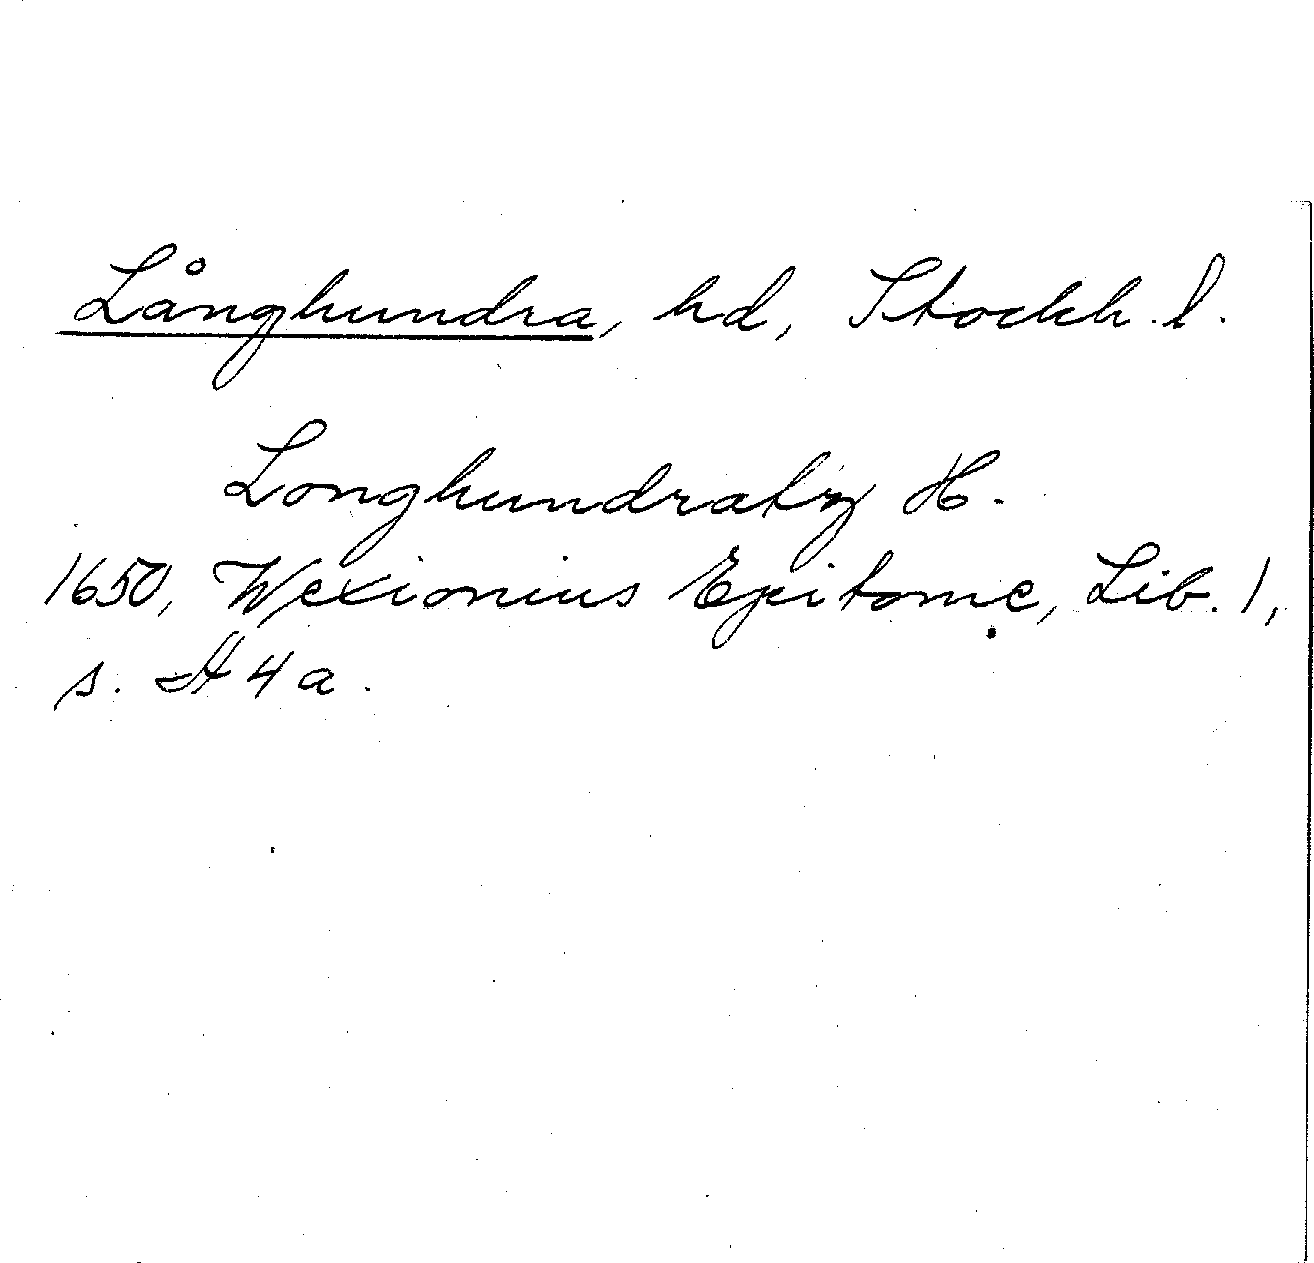 Långhundra, hd, Stockh. l.
Longhundratz H.
1650, Wexionius Epitome, Lib. 1,
s. A 4 a.